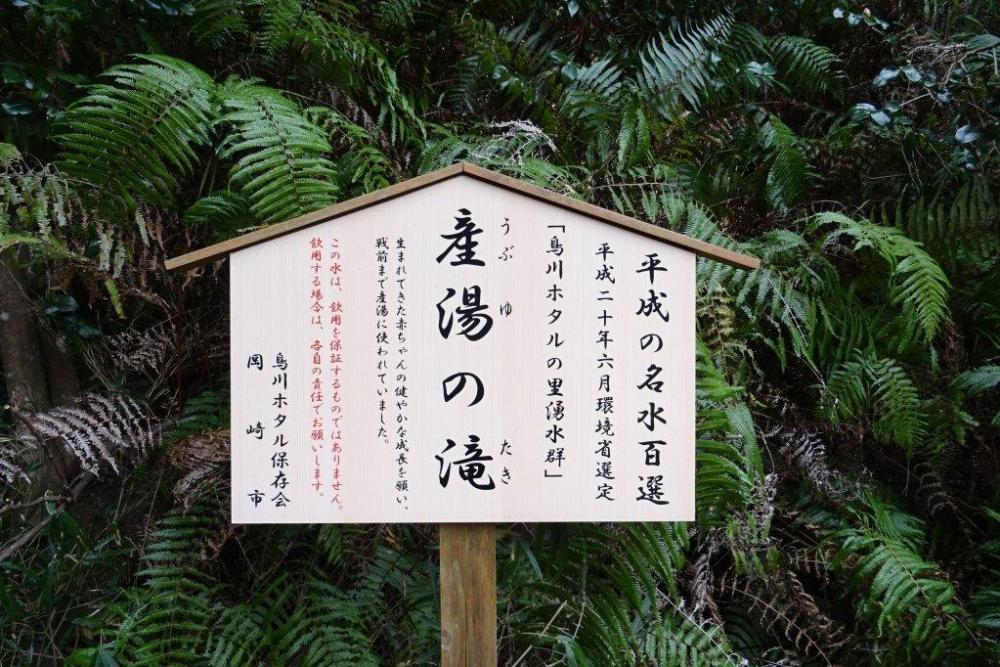 平成の名水百選
平成二十年六月環境省選定
「鳥川ホタルの里湧水群」
うぶゆ たき
産湯の滝
生まれてきた赤ちゃんの健やかな成長を願い、
戦前まで産湯に使われていました。
この水は、飲用を保証するものではありません。
飲用する場合は、各自の責任でお願いします。
鳥川ホタル保存会
岡崎市